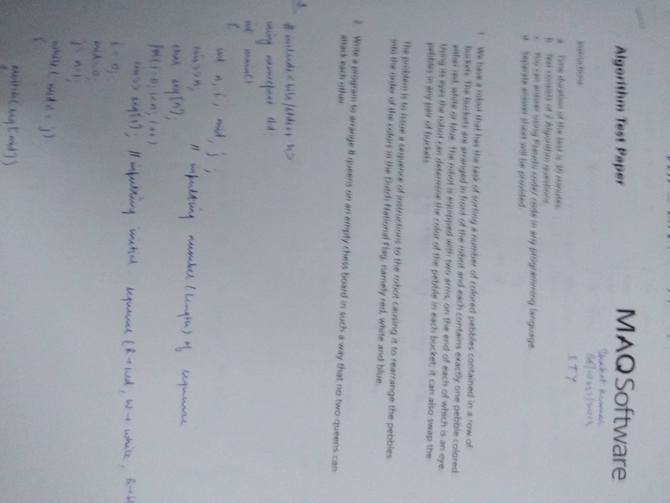 Algorithm Test Paper
MAQ Software
Instructions
a. Time duration of the test is 90 minutes.
b. Test consists of 2 Algorithm questions.
c. You can answer using Pseudo code/ code in any programming language.
d. Separate answer sheet will be provided.
1. We have a robot that has the task of sorting a number of colored pebbles contained in a row of
buckets. The buckets are arranged in front of the robot and each contains exactly one pebble colored
either red, white or blue. The robot is equipped with two arms, on the end of each of which is an eye.
Using its eyes the robot can determine the color of the pebble in each bucket; it can also swap the
pebbles in any pair of buckets.
The problem is to issue a sequence of instructions to the robot causing it to rearrange the pebbles
into the order of the colors in the Dutch National Flag, namely red, white and blue.
2. Write a program to arrange 8 queens on an empty chess board in such a way that no two queens can
attack each other.
# include <bits/stdc++.h>
using namespace std
int main()
{
int n, i, mid, j;
cin>>n; // inputting number (length) of sequence
char seq[n];
for(i=0; i<n; i++)
cin>> seq[i]; // inputting initial sequence (R→red, W→ white,
i = 0;
mid=0;
j = n-1;
while( mid <= j)
{
switch(seq[mid])
{